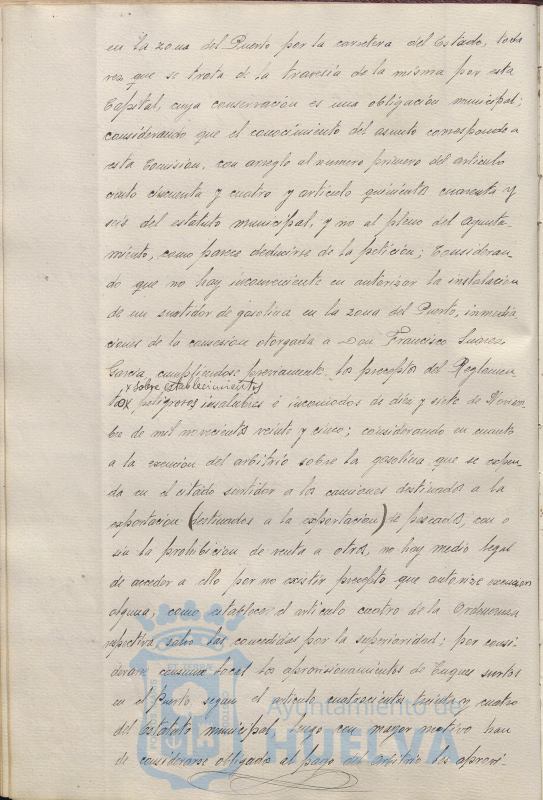 en la zona del Puerto por la carretera del Estado, toda
vez que se trata de la travesía de la misma por esta
Capital, cuya conservación es una obligación municipal;
considerando que el conocimiento del asunto corresponde a
esta Comision, con arreglo al numero primero del articulo
ciento cincuenta y cuatro y articulo quinientos cuarenta y
seis del estatuto municipal, y no al pleno del Ayunta-
miento, como parece deducirse de la peticion; Consideran-
do que no hay inconveniente en autorizar la instalacion
de un surtidor de gasolina en la zona del Puerto, inmedia
ciones de la concesion otorgada a Don Francisco Suarez
Garcia, cumpliendose previamente los preceptos del Reglamen
x sobre establecimientos
to x peligrosos insalubres é incomodos de diez y siete de Noviem-
bre de mil novecientos veinte y cinco; considerando en cuanto
a la exencion del arbitrio sobre la gasolina que se expen-
da en el citado surtidor a los camiones destinados a la
exportacion (destinados a la exportacion) de pescados, con o
sin la prohibicion de venta a otros, no hay medio legal
de acceder a ello por no existir precepto que autorize exencion
alguna, como establece el articulo cuatro de la Ordenanza
respectiva, salvo las concedidas por la superioridad; por consi-
derarse consumo local los aprovisionamientos de buques surtos
en el Puerto, segun el articulo cuatrocientos treinta y cuatro
del Estatuto municipal, luego con mayor motivo han
de considerarse obligado al pago del arbitrio los aprovi-
Ayuntamiento de
HUELVA